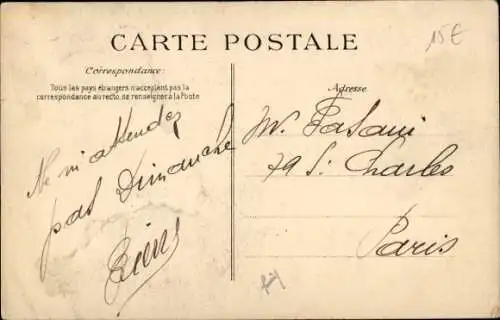 CARTE POSTALE
15€
Correspondance:
Tous les pays étrangers n'acceptent pas la
correspondance au recto, se renseigner à la Poste
Adresse
Ne m'attendez
pas Dimanche
M. Pasani
79 St Charles
Paris